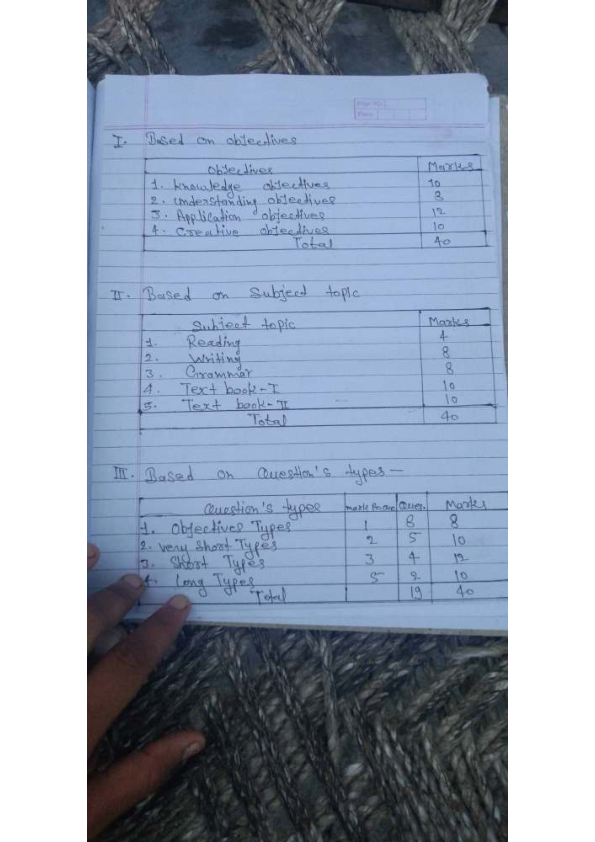 Page No.
Date
I. Based on objectives
Objectives Marks
1. knowledge objectives 10
2. understanding objectives 8
3. Application objectives 12
4. Creative objectives 10
Total 40
II. Based on Subject topic
Subject topic Marks
1. Reading 4
2. Writing 8
3. Grammar 8
4. Text book-I 10
5. Text book-II 10
Total 40
III. Based on Question's types—
Question's types Mark Ques. Marks
1. Objectives Types 1 8 8
2. very Short Types 2 5 10
3. Short Types 3 4 12
4. Long Types 5 2 10
Total 19 40